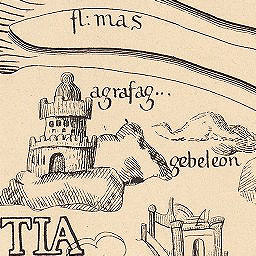 fl: mas
agrafag...
gebeleon
TIA